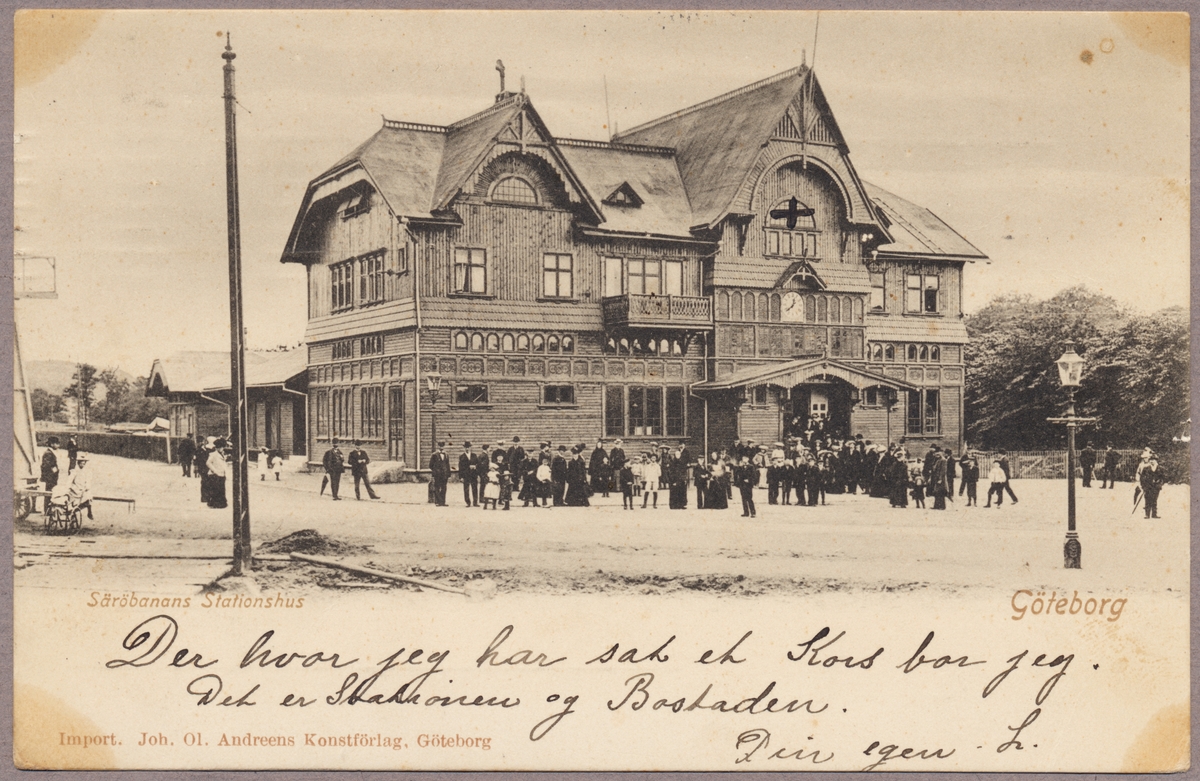 Säröbanans Stationshus
Göteborg
Der hvor jeg har sat et Kors bor jeg.
Det er Stationen og Bostaden.
Import. Joh. Ol. Andreens Konstförlag, Göteborg
Din egen L.